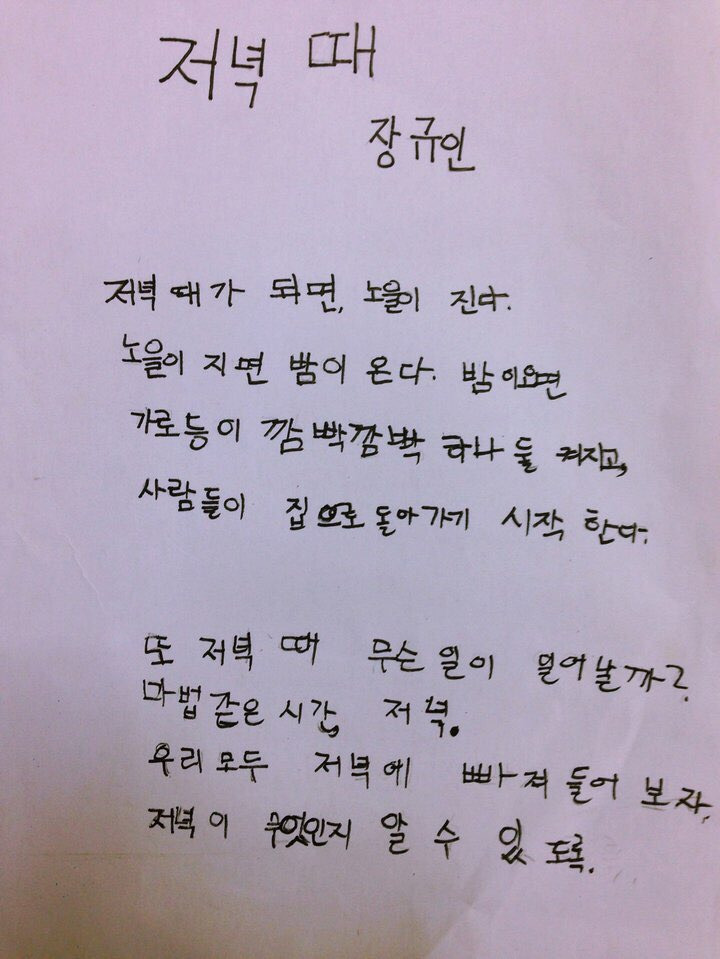 저녁 때
장규인
저녁 때가 되면, 노을이 진다.
노을이 지면 밤이 온다. 밤이오면
가로등이 깜빡깜빡 하나 둘 켜지고,
사람들이 집으로 돌아가기 시작 한다.
또 저녁 때 무슨 일이 일어날까?
마법 같은 시간, 저녁.
우리 모두 저녁에 빠져 들어 보자,
저녁이 무엇인지 알 수 있 도록.